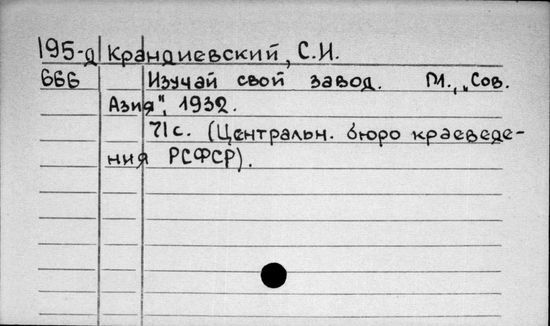 195-д Крандиевский, С.И.
666 Изучай свой завод. М., „Сов.
Азия", 1932.
71с. (Центральн. бюро краеведе-
ния РСФСР).